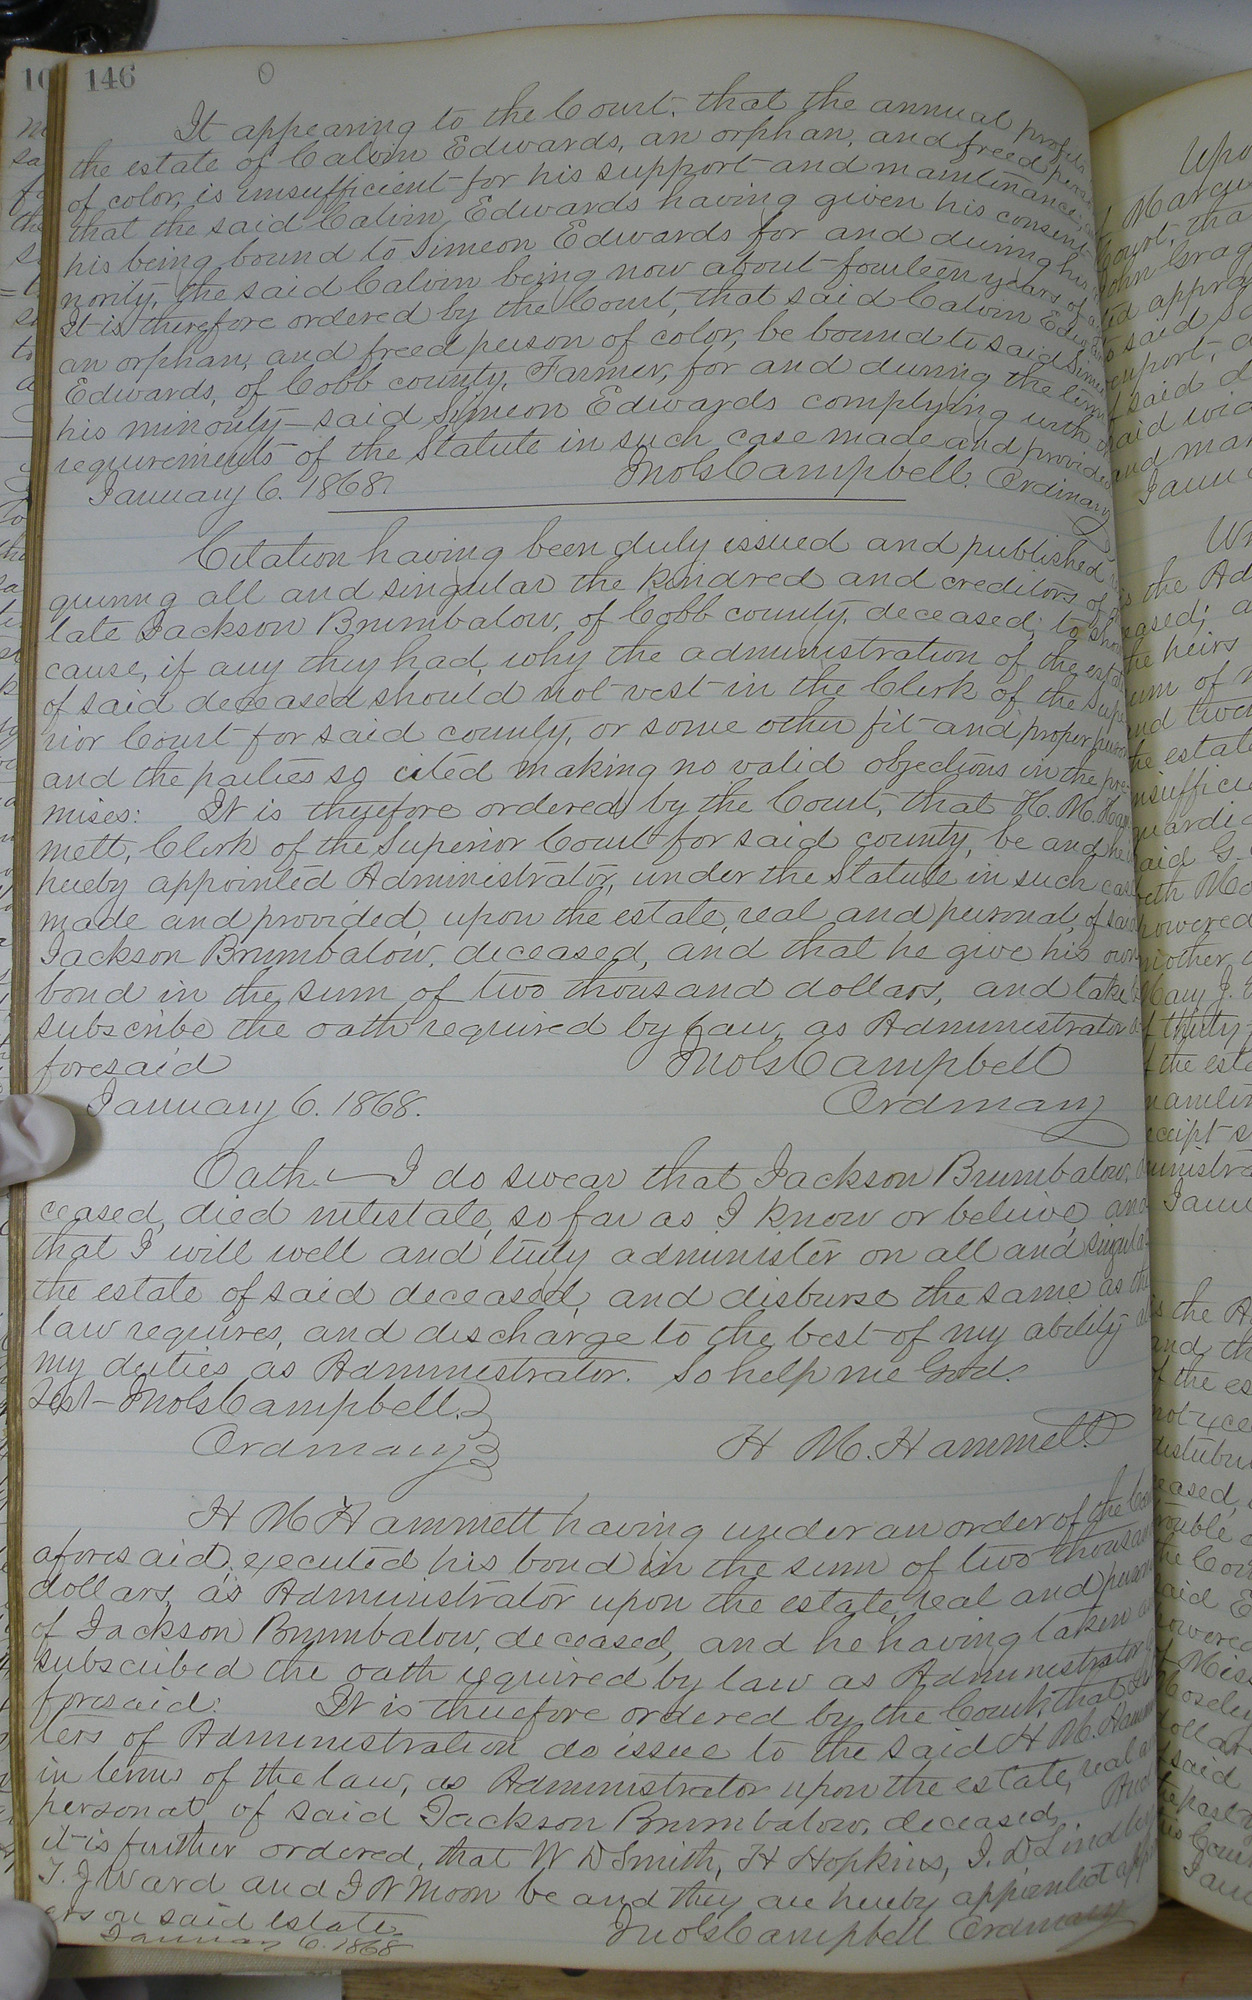 146
It appearing to the Court, that the annual profits
the estate of Calvin Edwards, an orphan, and freed person
of color, is insufficient for his support and maintenance, and
that the said Calvin Edwards having given his consent
his being bound to Simeon Edwards for and during his
nority, the said Calvin being now about fourteen years of a
It is therefore ordered by the Court, that said Calvin Edwards
an orphan, and freed person of color, be bound to said Simeon
Edwards, of Cobb county, Farmer, for and during the term
his minority— said Simeon Edwards complying with
requirements of the Statute in such case made and provided
January 6. 1868. Jno G Campbell. Ordinary
Citation having been duly issued and published
quiring all and singular the kindred and creditors of
late Jackson Brumbalow, of Cobb county, deceased; to show
cause, if any they had, why the administration of the estate
of said deceased should not vest in the Clerk of the Supe
rior Court for said county, or some other fit and proper person
and the parties so cited making no valid objections in the pre-
mises: It is therefore ordered by the Court, that H. M. Ham
mett, Clerk of the Superior Court for said county, be and he is
hereby appointed Administrator, under the Statute in such case
made and provided, upon the estate, real and personal, of said
Jackson Brumbalow, deceased, and that he give his own
bond in the sum of two thousand dollars, and take
subscribe the oath required by law, as Administrator a-
foresaid Jno G Campbell
January 6. 1868. Ordinary
Oath.— I do swear that Jackson Brumbalow,
ceased, died intestate, so far as I know or believe, and
that I will well and truly administer on all and singular
the estate of said deceased, and disburse the same as the
law requires, and discharge to the best of my ability
my duties as Administrator. So help me God.
Test— Jno G Campbell.
Ordinary H M. Hammett.
H M Hammett having under an order of the Court
aforesaid, executed his bond in the sum of two thousand
dollars, as Administrator upon the estate, real and person
of Jackson Brumbalow, deceased, and he having taken
subscribed the oath required by law as Administrator
foresaid: It is therefore ordered by the Court, that Let
ters of Administration do issue to the said H M. Hamm
in terms of the law, as Administrator upon the estate, real
personal of said Jackson Brumbalow, deceased, And
it is further ordered, that W D Smith, H Hopkins, J. D Lindley
T. J Ward and J W Moon be and they are hereby appointed appr
ers on said estate.
January 6. 1868 Jno G Campbell Ordinary